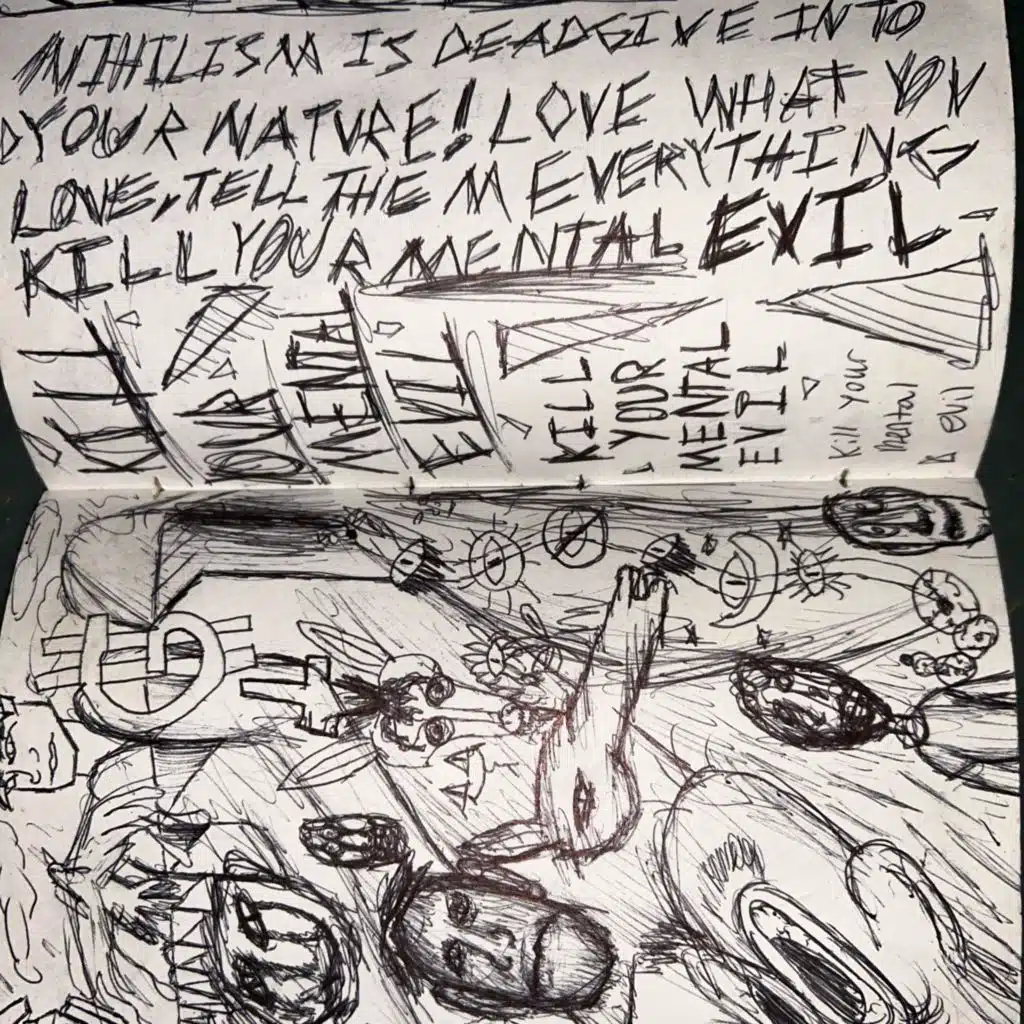 NIHILISM IS DEADGIVE INTO
YOUR NATURE! LOVE WHAT YOU
LOVE, TELL THEM EVERYTHING
KILL YOUR MENTAL EVIL
KILL
YOUR
MENTAL
EVIL
KILL
YOUR
MENTAL
EVIL
Kill your
mental
evil